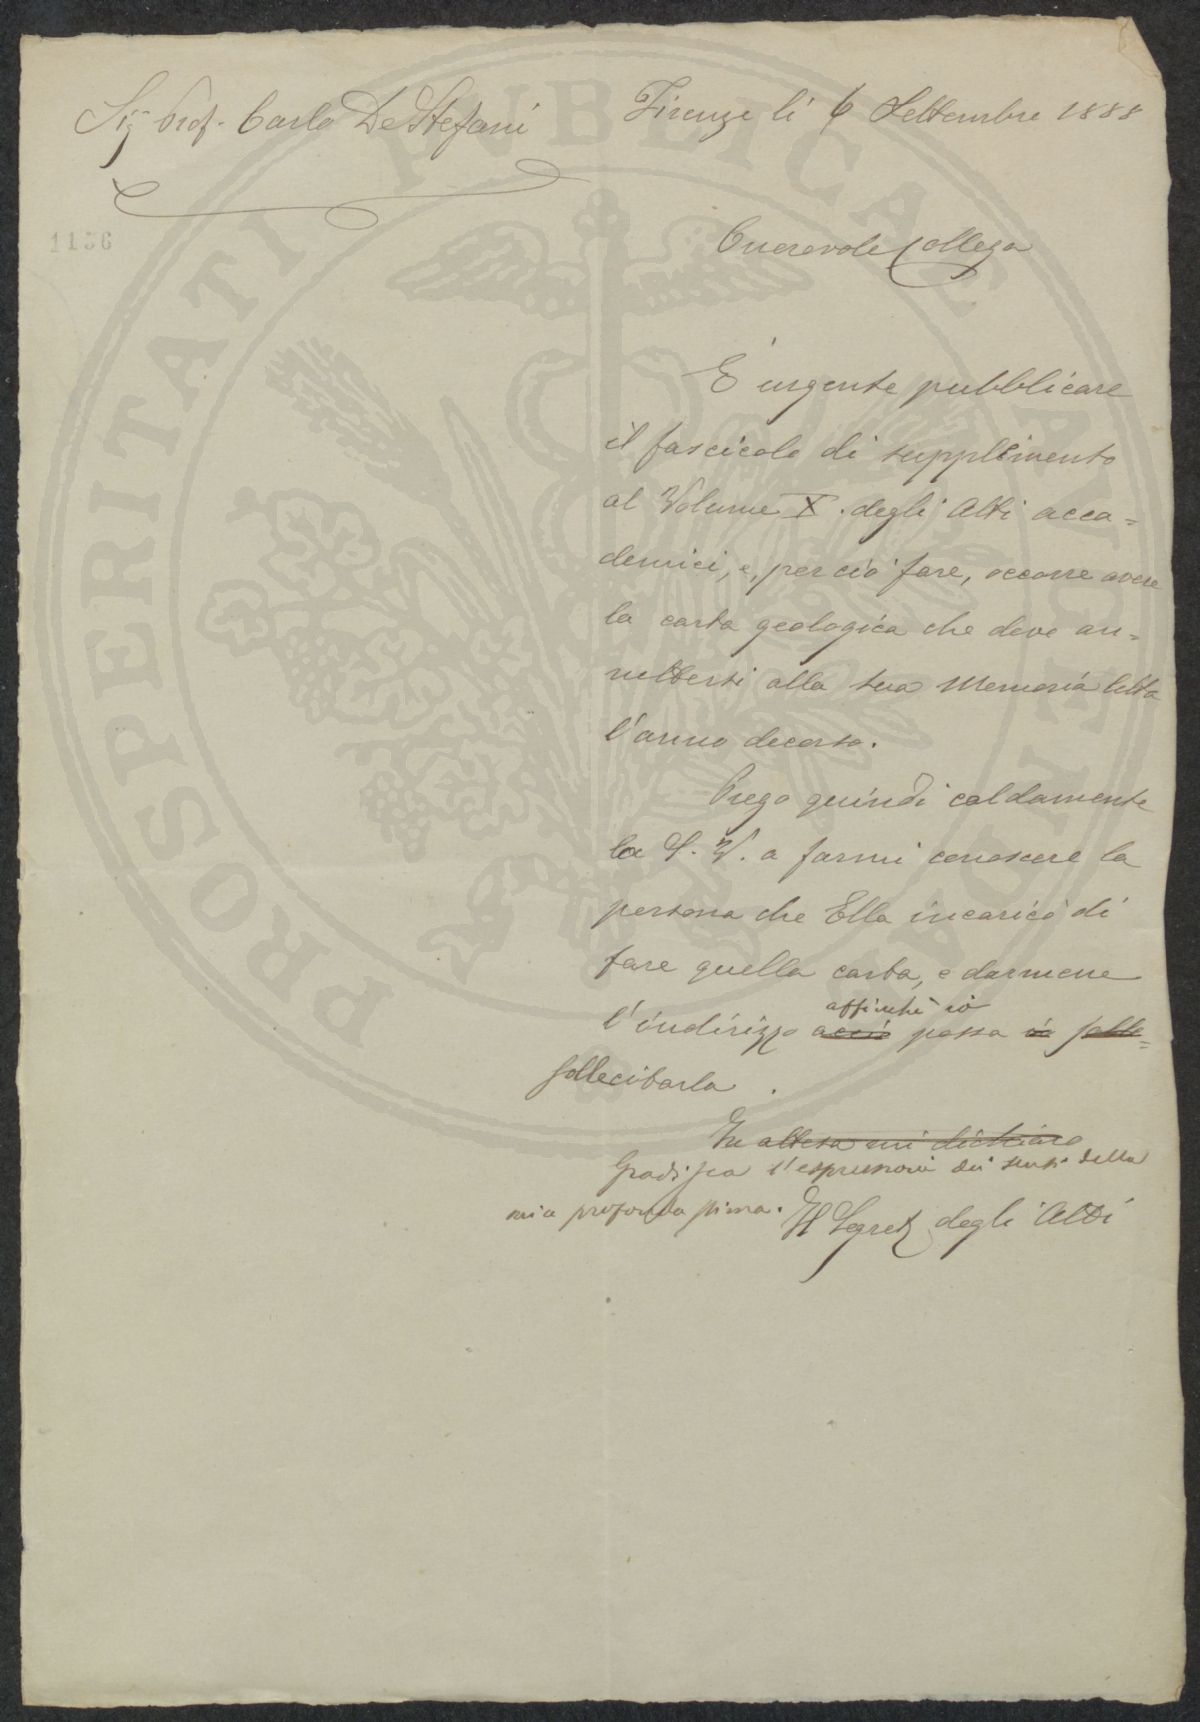 Sig Prof. Carlo De Stefani
Firenze li 6 Settembre 1888
1136
Onorevole Collega
È urgente pubblicare
il fascicolo di supplimento
al Volume X. degli Atti acca=
demici, e, per ciò fare, occorre avere
la carta geologica che deve an=
nettersi alla sua Memoria letta
l'anno decorso.
Prego quindi caldamente
la S. V. a farmi conoscere la
persona che Ella incaricò di
fare quella carta, e darmene
affinchè io
l'indirizzo acciò possa io solle=
sollecitarla.
In attesa mi dichiaro
Gradisca l'espressioni dei sensi della
mia profonda stima.
Il Segret degli Atti
PROSPERITATI PUBLICAE AUGENDAE